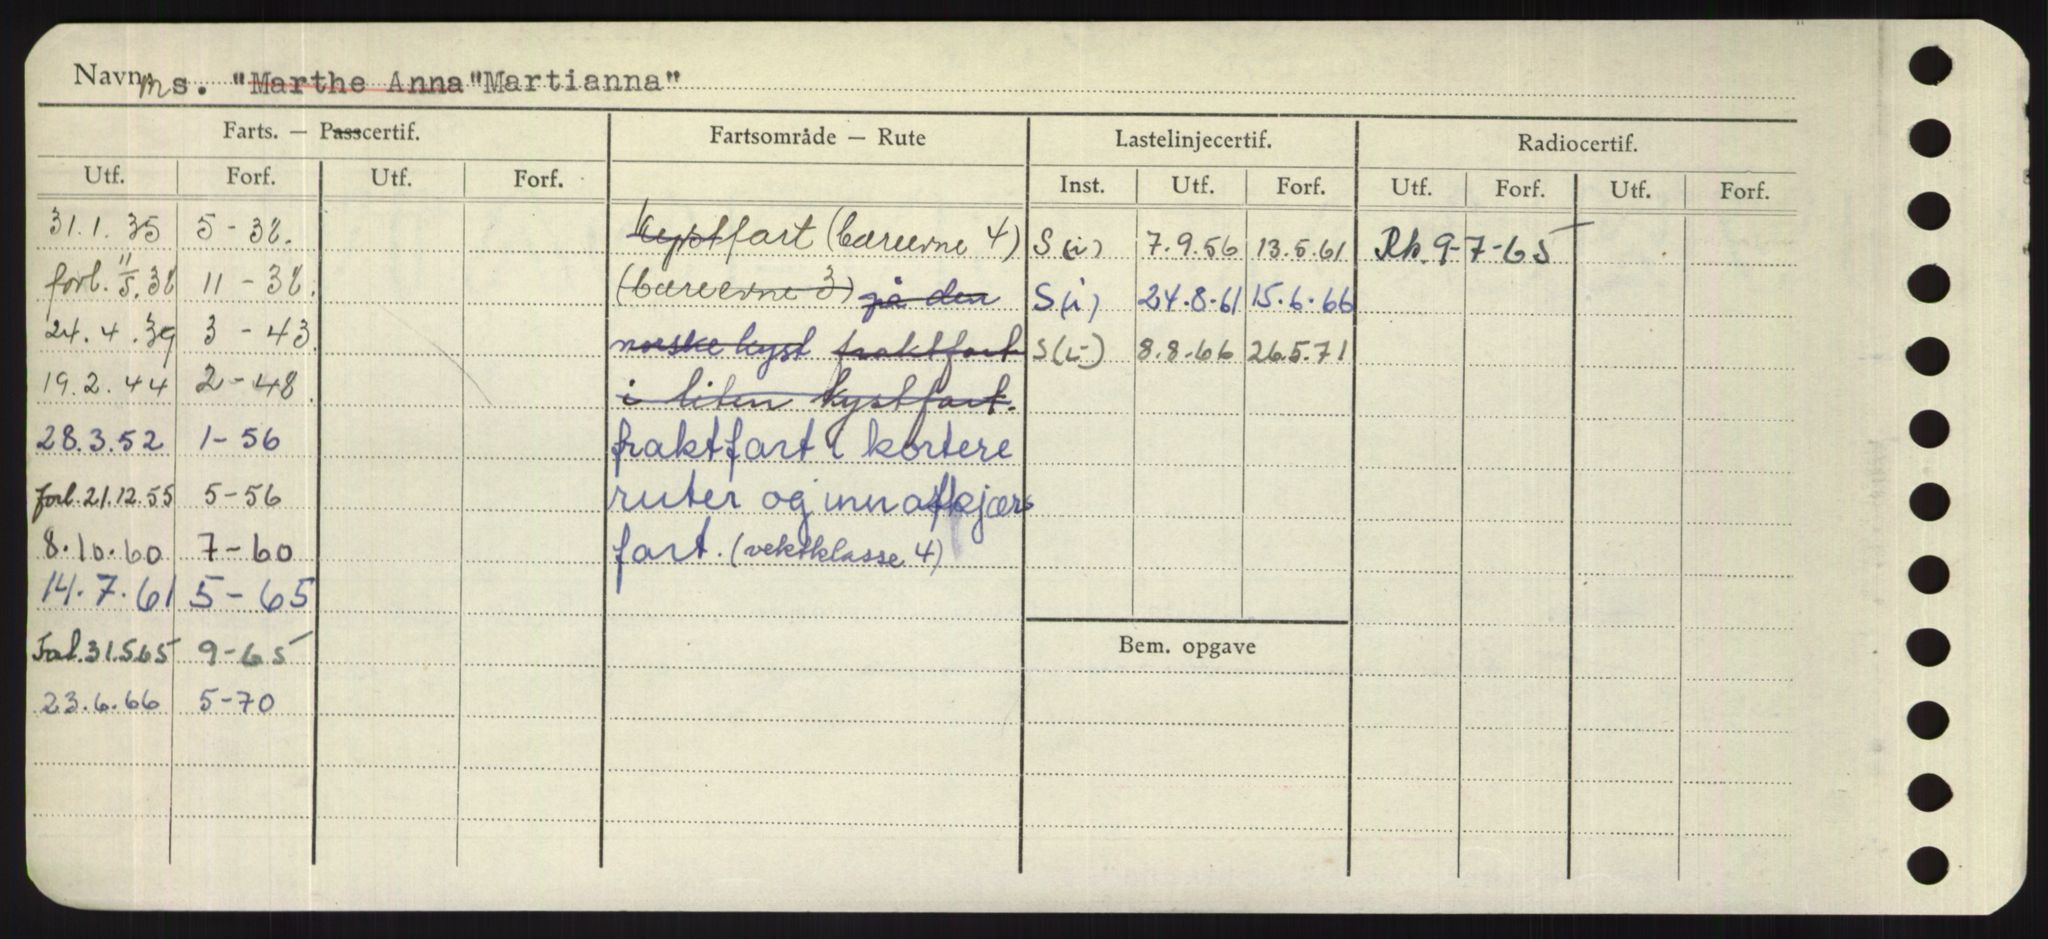 Navn: ms. "Marthe Anna "Martianna"
Farts. — Passcertif. Fartsområde — Rute Lastelinjecertif. Radiocertif.
Utf. Forf. Utf. Forf. Inst. Utf. Forf. Utf. Forf. Utf. Forf.
31.1.35 5-38. kystfart (bæreevne 4) S(i) 7.9.56 13.5.61 Rk. 9-7-65
forl. 11/5.38 11-38. (bæreevne 3) på den S(i) 24.8.61 15.6.66
24.4.39 3-43. norske kyst fraktfart S(i) 8.8.66 26.5.71
19.2.44 2-48. i liten kystfart.
28.3.52 1-56 fraktfart i kortere
forl. 21.12.55 5-56 ruter og innaskjærs
8.10.60 7-60 fart. (vektklasse 4)
14.7.61 5-65
Forl. 31.5.65 9-65 Bem. opgave
23.6.66 5-70